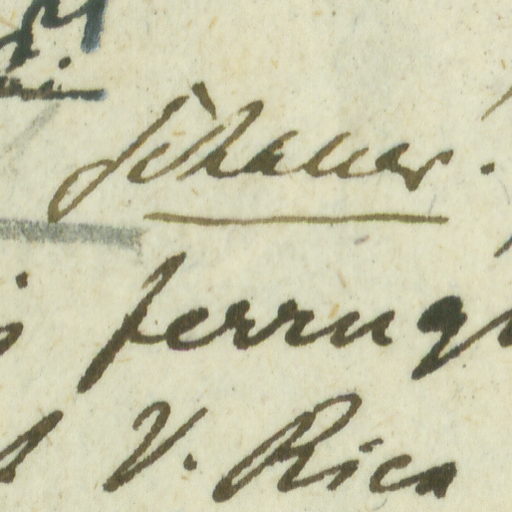 Schauer.
ferrug
V. Rica